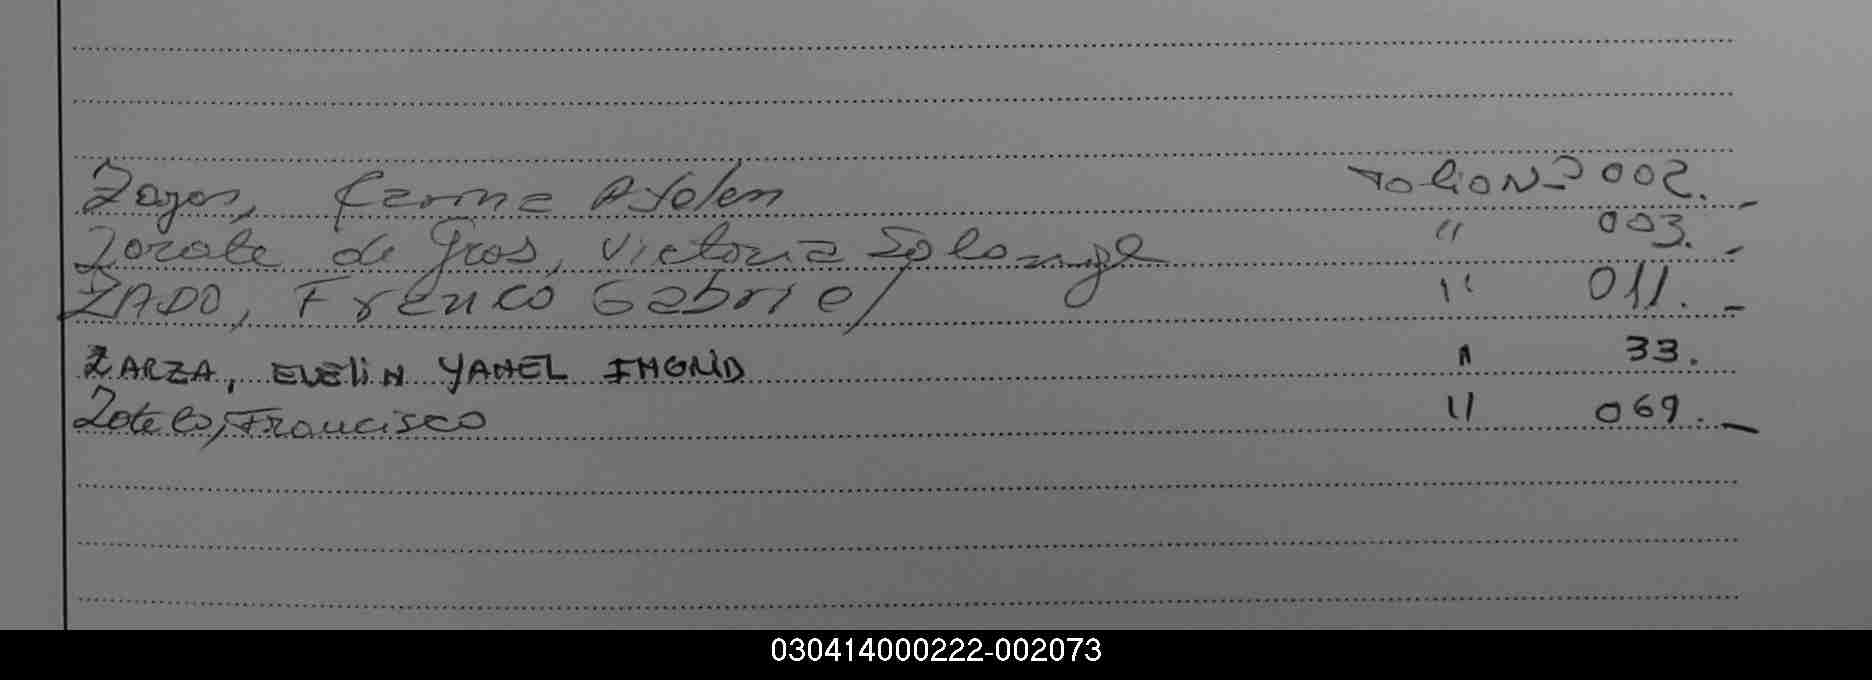 Zayas, Karina Ayelen Folio Nº 002.
Zarate de Gros, Victoria Solange " 003.
ZADO, Franco Gabriel " 011.
ZARZA, EVELIN YAHEL INGRID " 33.
Zotelo, Francisco " 069.
030414000222-002073